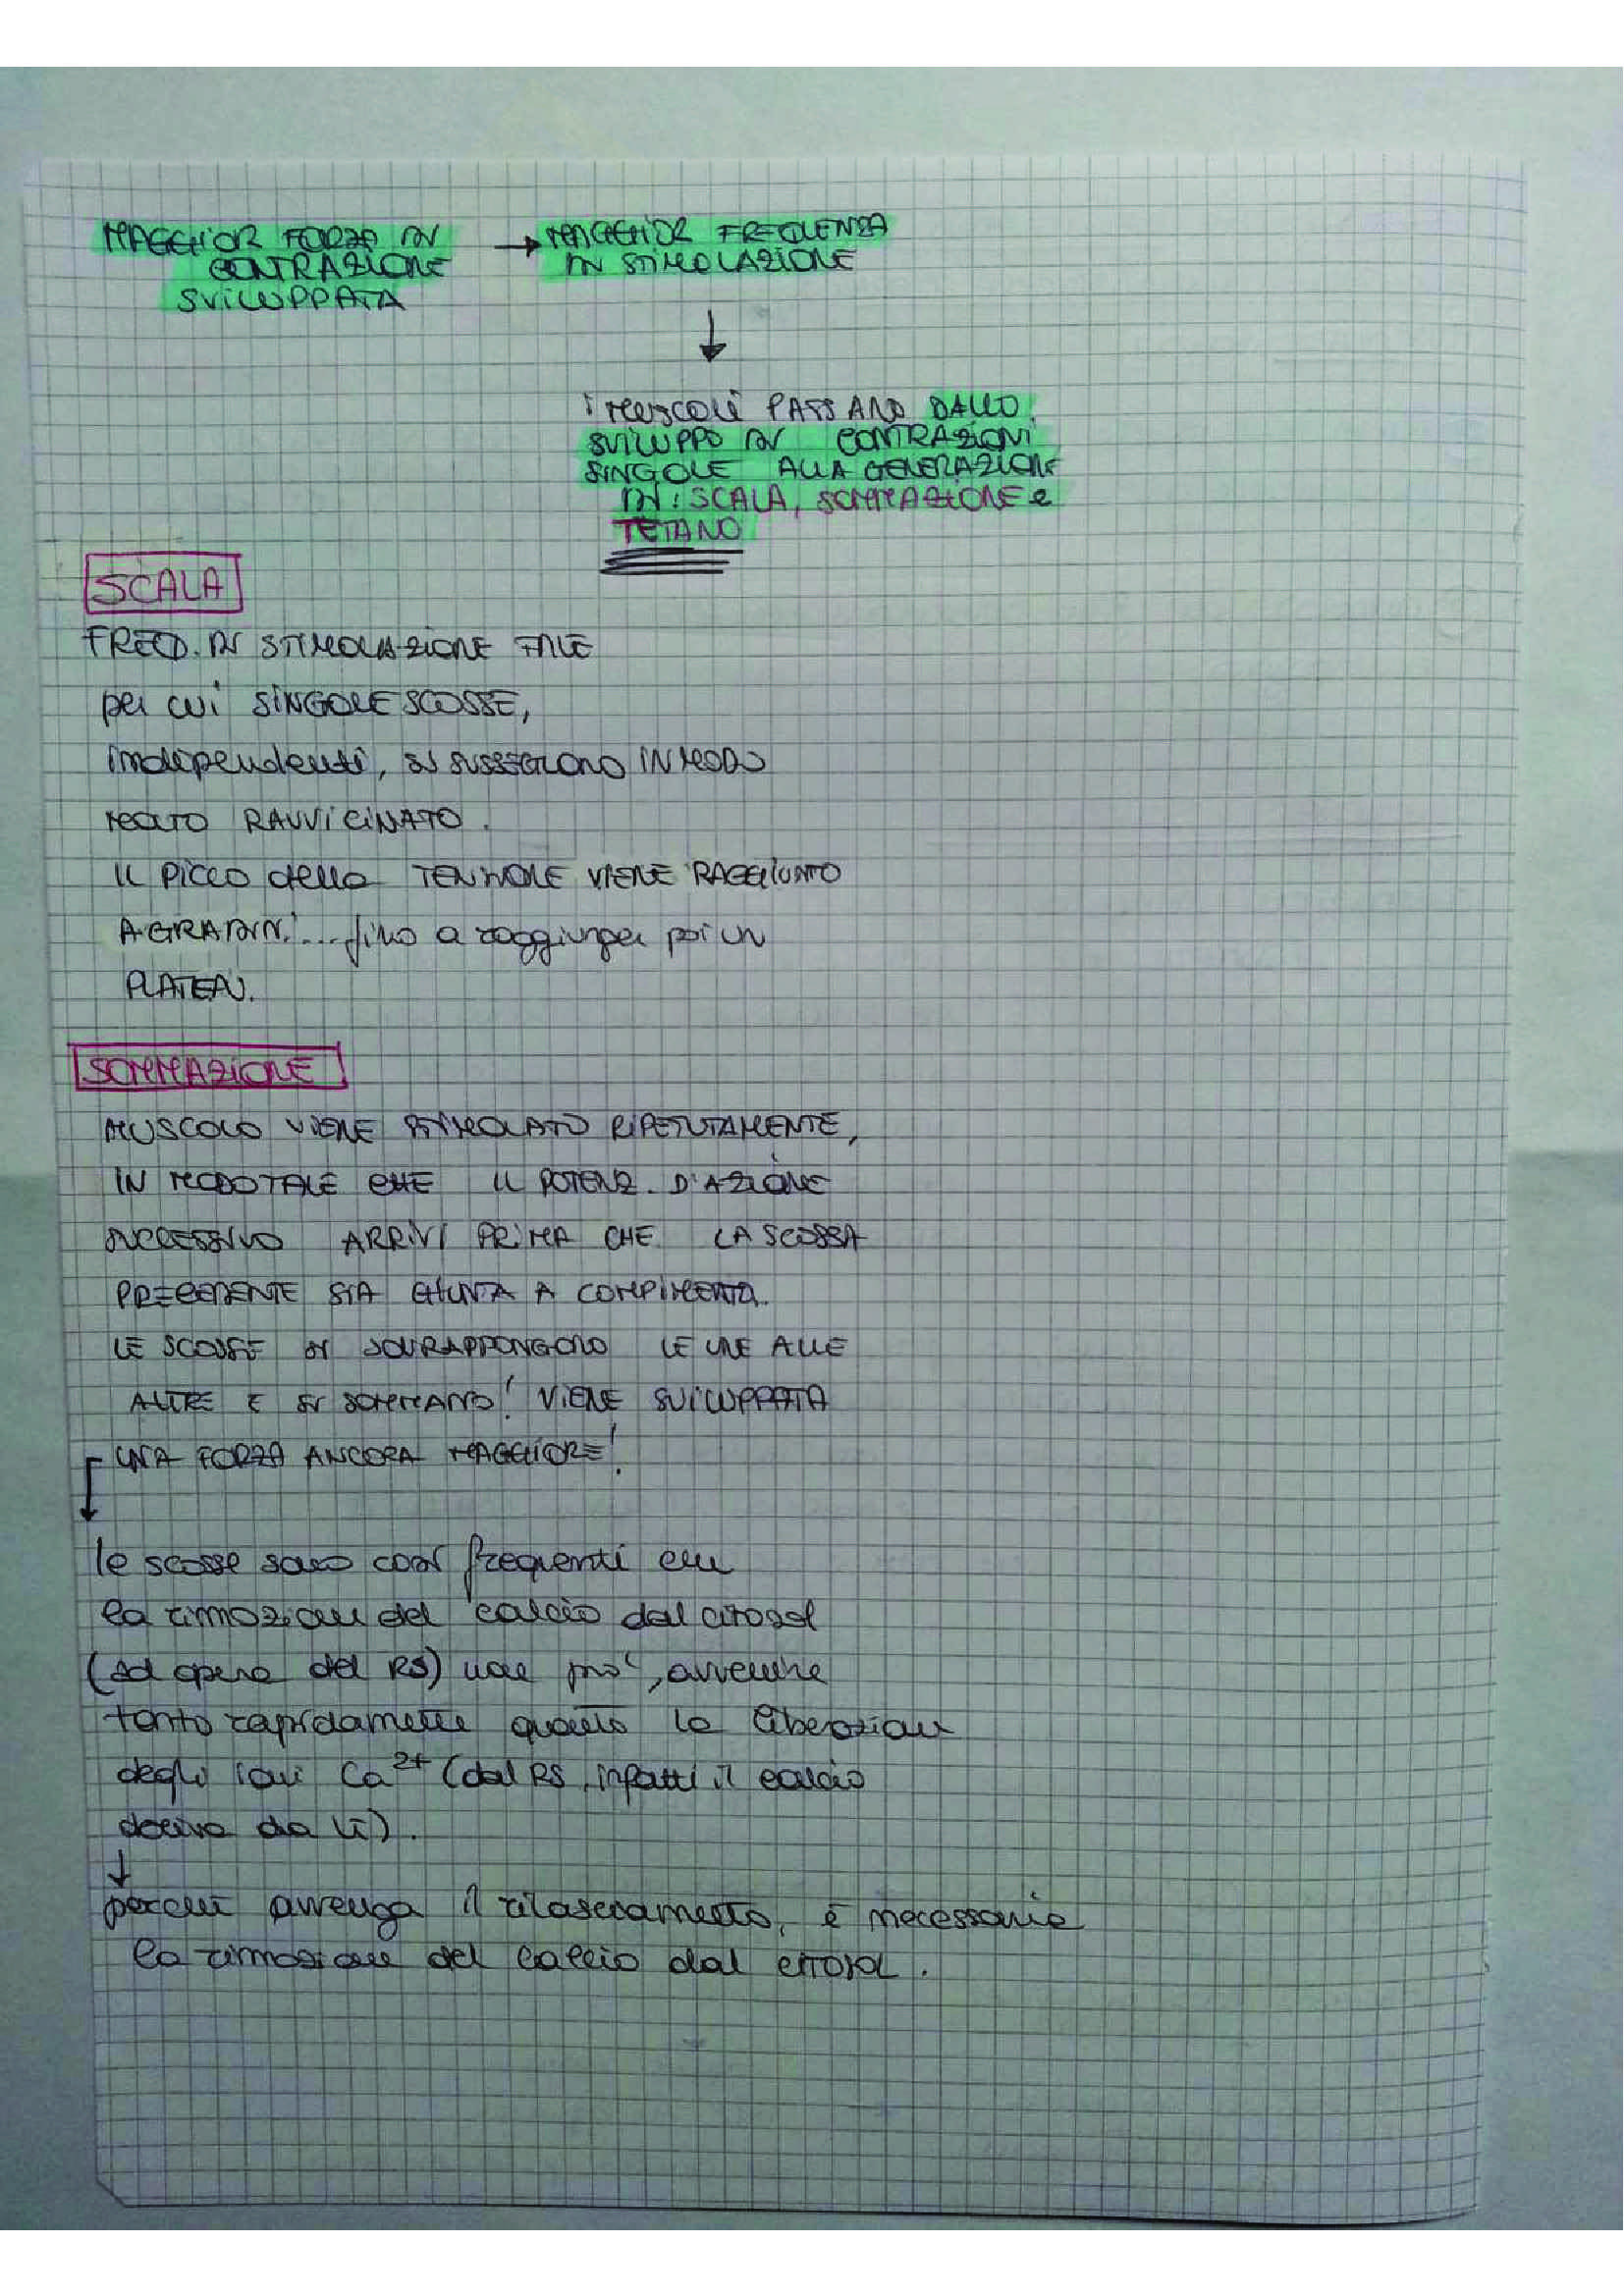 MAGGIOR FORZA DI
CONTRAZIONE
SVILUPPATA
→ MAGGIOR FREQUENZA
DI STIMOLAZIONE
↓
i MUSCOLI PASSANO DALLO
SVILUPPO DI CONTRAZIONI
SINGOLE ALLA GENERAZIONE
DI: SCALA, SOMMAZIONE e
TETANO
SCALA
FREQ. DI STIMOLAZIONE TALE
per cui SINGOLE SCOSSE,
indipendenti, SI SUSSEGUONO IN MODO
MOLTO RAVVICINATO.
IL PICCO della TENSIONE VIENE RAGGIUNTO
A GRADINI... fino a raggiunger poi un
PLATEAU.
SOMMAZIONE
MUSCOLO VIENE STIMOLATO RIPETUTAMENTE,
IN MODO TALE CHE IL POTENZ. D'AZIONE
SUCCESSIVO ARRIVI PRIMA CHE LA SCOSSA
PRECEDENTE SIA GIUNTA A COMPIMENTO.
LE SCOSSE SI SOVRAPPONGONO LE UNE ALLE
ALTRE E SI SOMMANO! VIENE SVILUPPATA
UNA FORZA ANCORA MAGGIORE!
↓
le scosse sono così frequenti che
la rimozione del calcio dal citosol
(ad opera del RS) non può, avvenire
tanto rapidamente quanto la liberazione
degli ioni Ca²⁺ (dal RS, infatti il calcio
deriva da lì).
↓
perché avvenga il rilasciamento, è necessaria
la rimozione del calcio dal citosol.